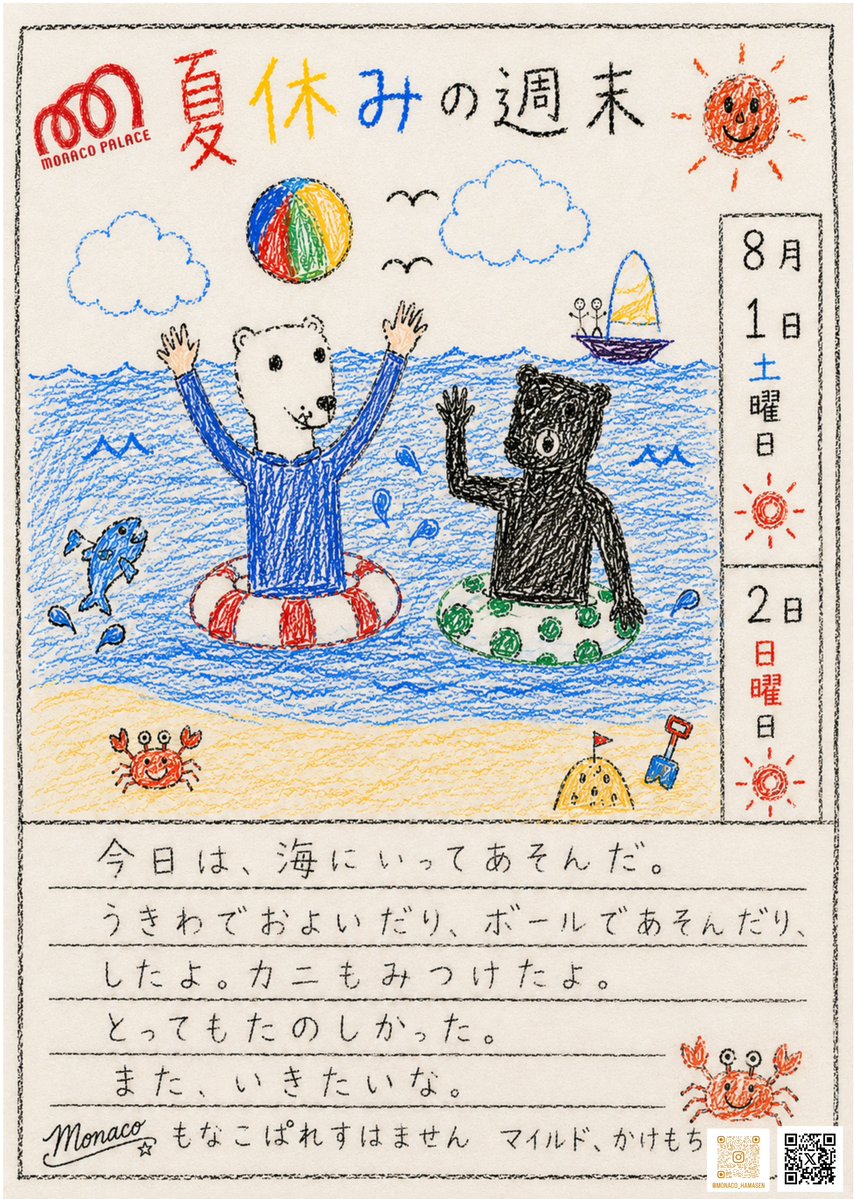 MONACO PALACE
夏休みの週末
8月
1日
土
曜
日
2日
日
曜
日
今日は、海にいってあそんだ。
うきわでおよいだり、ボールであそんだり、
したよ。カニもみつけたよ。
とってもたのしかった。
また、いきたいな。
Monaco もなこぱれすはません マイルド、かけもち
@MONACO_HAMASEN